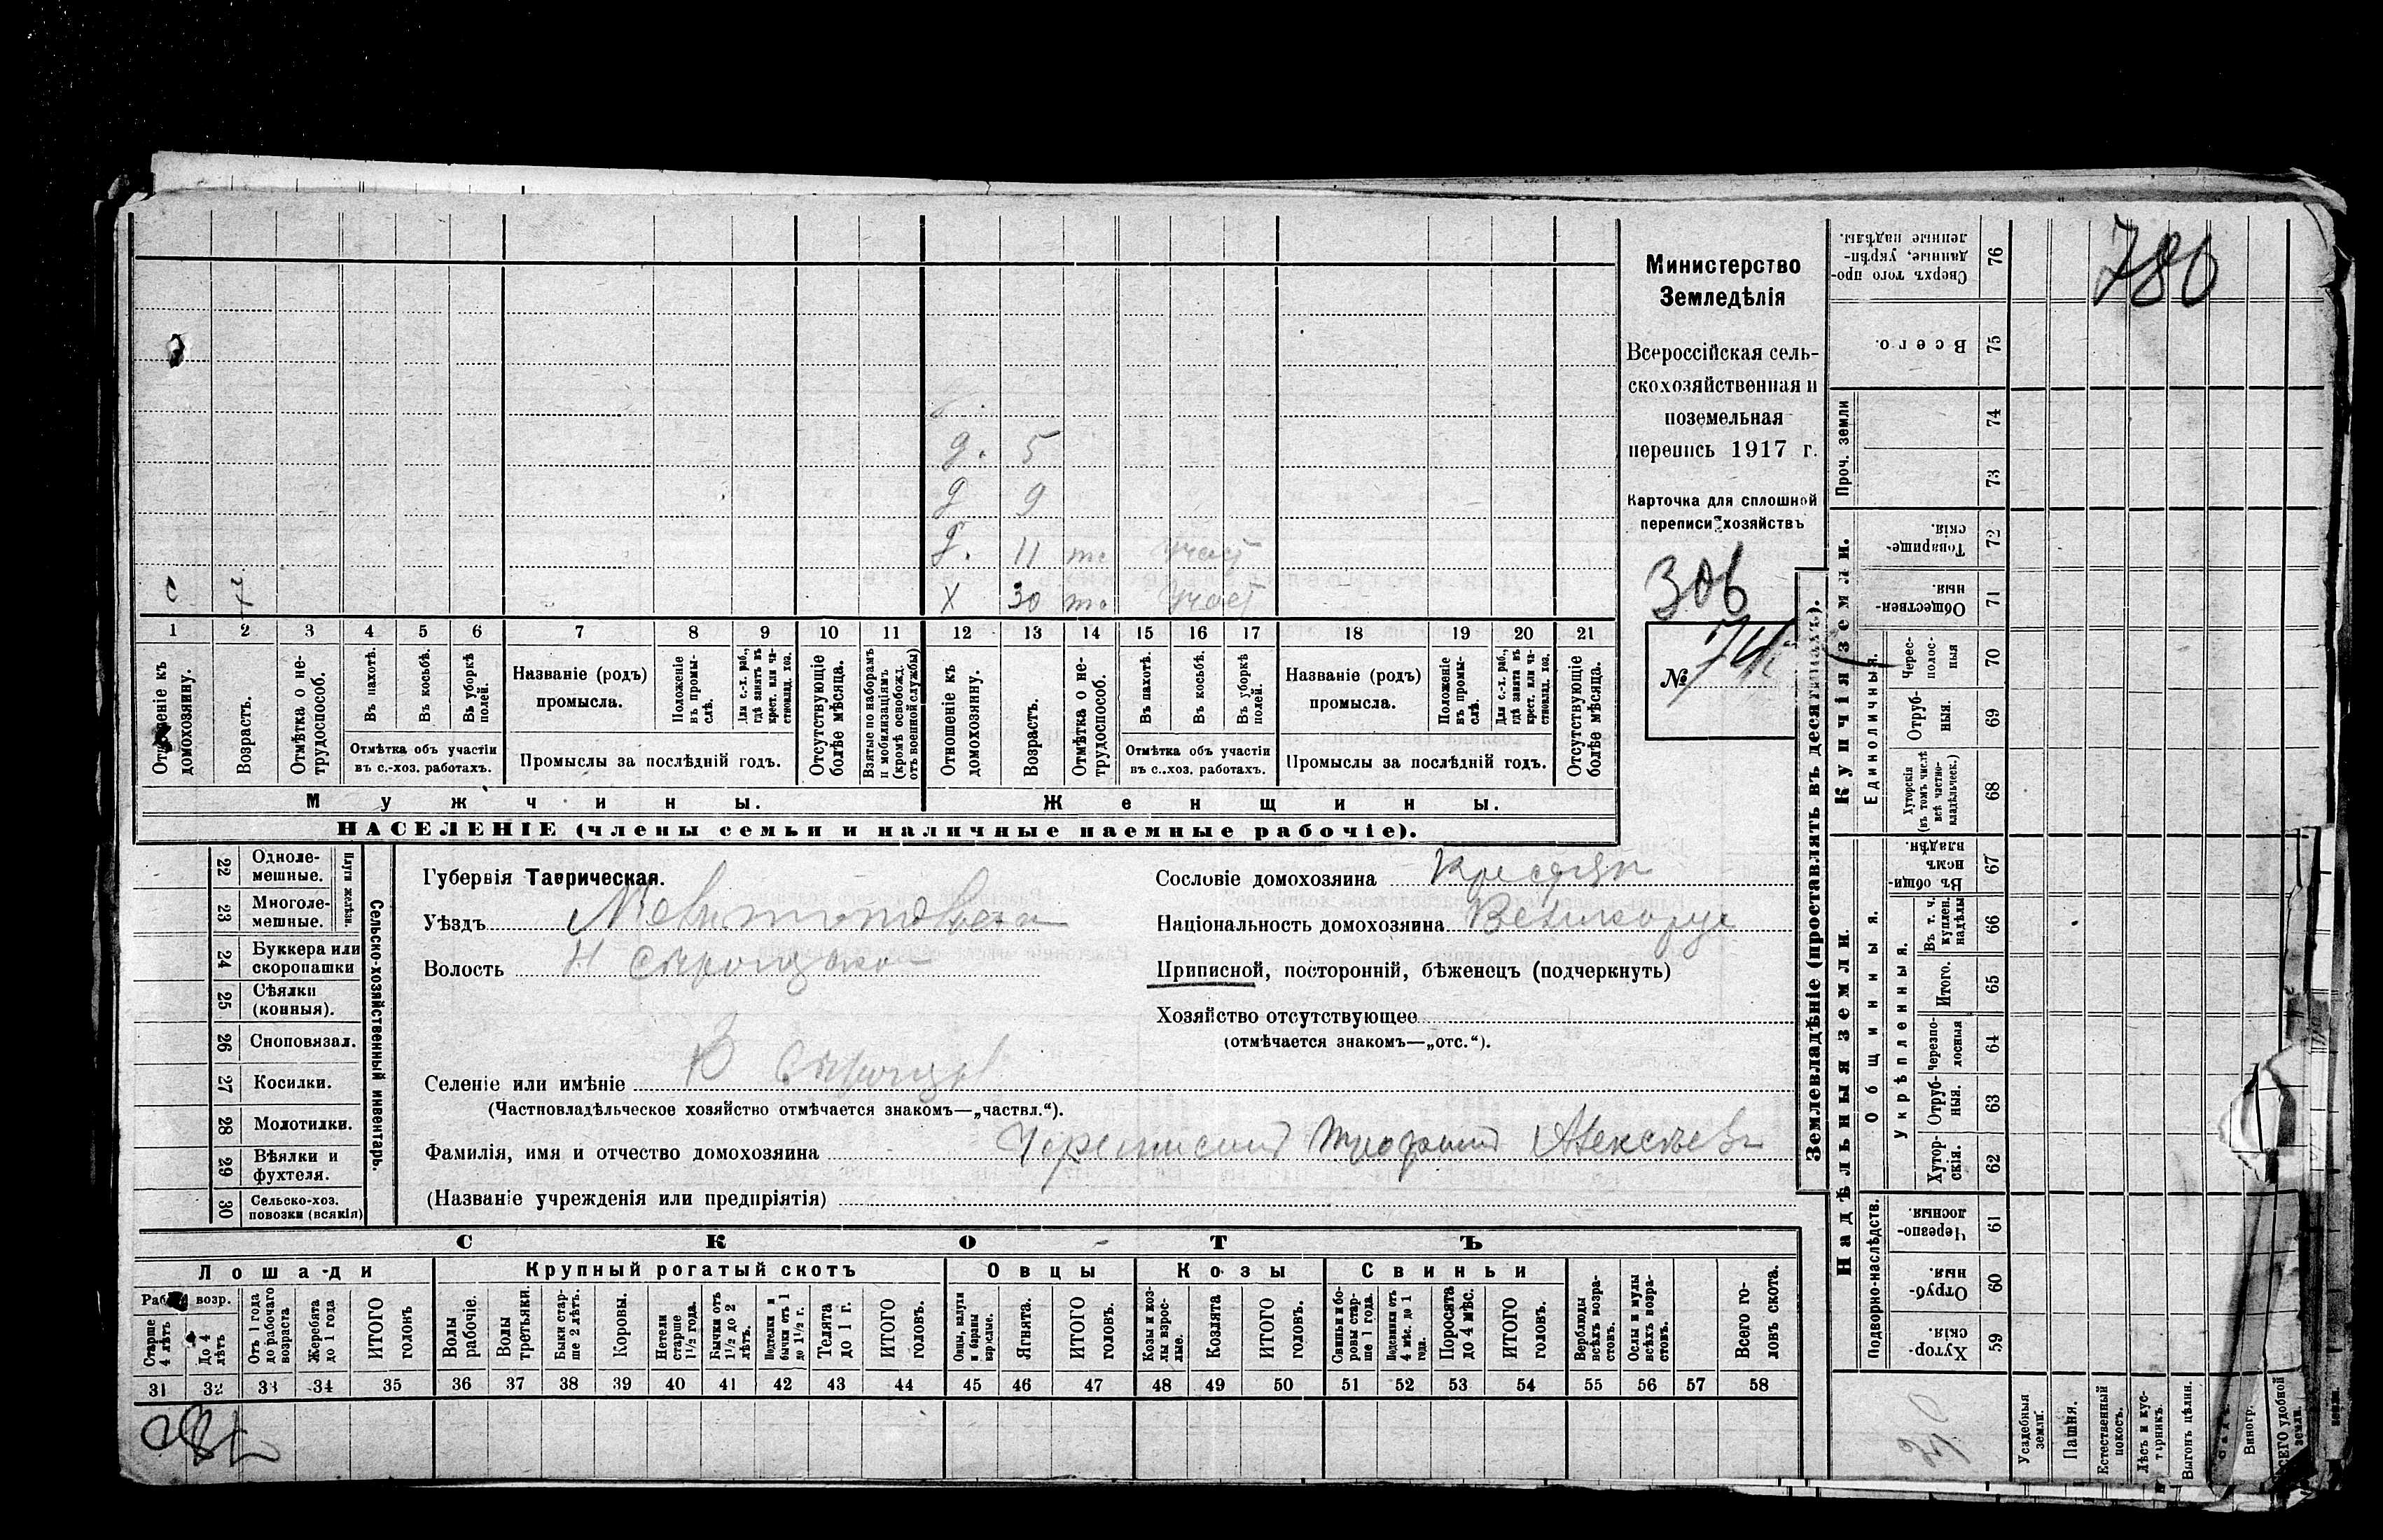 780
Министерство
Земледѣлія
Всероссійская сель-
скохозяйственная и
поземельная
перепись 1917 г.
Карточка для сплошной
переписи хозяйствъ
306
№
д. 5
д 9
д. 11
х 30
1 2 3 4 5 6 7 8 9 10 11 12 13 14 15 16 17 18 19 20 21
Отношеніе къ домохозяину.
Возрастъ.
Отмѣтка о не-трудоспособ.
Въ пахотѣ.
Въ косьбѣ.
Въ уборкѣ полей.
Отмѣтка объ участіи
въ с.-хоз. работахъ.
Названіе (родъ)
промысла.
Положеніе въ промы-слѣ.
Для с.-х. раб., гдѣ занятъ въ крест. или ча-ствовлад. хоз.
Промыслы за послѣдній годъ.
Отсутствующіе болѣе мѣсяца.
Взятые по наборамъ и мобилизаціямъ (кромѣ освобожд. отъ военной службы)
Отношеніе къ домохозяину.
Возрастъ.
Отмѣтка о не-трудоспособ.
Въ пахотѣ.
Въ косьбѣ.
Въ уборкѣ полей.
Отмѣтка объ участіи
въ с.-хоз. работахъ.
Названіе (родъ)
промысла.
Положеніе въ промы-слѣ.
Для с.-х. раб., гдѣ занята въ крест. или ча-ствовлад. хоз.
Промыслы за послѣдній годъ.
Отсутствующіе болѣе мѣсяца.
Мужчины.
Женщины.
НАСЕЛЕНІЕ (члены семьи и наличные наемные рабочіе).
Сельско-хозяйственный инвентарь.
Плуги желѣзн.
22 Одноле-мешные.
23 Многоле-мешные.
24 Буккера или скоропашки
25 Сѣялки (конныя).
26 Сноповязал.
27 Косилки.
28 Молотилки.
29 Вѣялки и фухтеля.
30 Сельско-хоз. повозки (всякія)
Губернія Таврическая.
Уѣздъ Мелитопольскій
Волость Н Сѣрогозская
Селеніе или имѣніе
(Частновладѣльческое хозяйство отмѣчается знакомъ—„частвл.“).
Фамилія, имя и отчество домохозяина Трофимъ Алексѣевъ
(Названіе учрежденія или предпріятія)
Сословіе домохозяина Крестян
Національность домохозяина Великорус
Приписной, посторонній, бѣженецъ (подчеркнуть)
Хозяйство отсутствующее
(отмѣчается знакомъ—„отс.“).
СКОТЪ
Лошади
Крупный рогатый скотъ
Овцы
Козы
Свиньи
возр.
Старше 4 лѣтъ
До 4 лѣтъ
Отъ 1 года до рабочаго возраста
Жеребята до 1 года
ИТОГО головъ
Волы рабочіе.
Волы третьяки.
Быки стар-ше 2 лѣтъ.
Коровы.
Нетели старше 1½ года.
Бычки отъ 1½ до 2 лѣтъ.
Подтелки и бычки отъ 1 до 1½ г.
Телята до 1 г.
ИТОГО головъ.
Овцы, валухи и бараны взрослые.
Ягнята.
ИТОГО головъ.
Козы и коз-лы взрос-лые.
Козлята
ИТОГО головъ.
Свиньи и бо-ровы стар-ше 1 года.
Подсвинки отъ 4 мѣс. до 1 года.
Поросята до 4 мѣс.
ИТОГО головъ.
Верблюды всѣхъ возра-стовъ.
Ослы и мулы всѣхъ возра-стовъ.
Всего го-ловъ скота.
31 32 33 34 35 36 37 38 39 40 41 42 43 44 45 46 47 48 49 50 51 52 53 54 55 56 57 58
Землевладѣніе (проставлять въ десятинахъ).
Купчія земли.
Надѣльныя земли.
Сверхъ того про-данные, укрѣп-ленные надѣлы. 76
Всего. 75
Проч. земли 74 73
Товарище-скія. 72
Обществен-ныя. 71
Единоличныя.
Черес-полос-ныя 70
Отруб-ныя. 69
Хуторскія (въ томъ числѣ всѣ частно-владѣльческ.) 68
Общинныя.
Въ общин-номъ владѣн. 67
Укрѣпленныя.
Въ т. ч. куплен. надѣлы 66
Итого. 65
черезпо-лосныя 64
Отруб-ныя. 63
Хутор-скія. 62
Подворно-наслѣдств.
Черезпо-лосныя. 61
Отруб-ныя. 60
Хутор-скія. 59
Усадебныя земли.
Пашня.
Естественный покосъ.
Лѣсъ и кус-тарникъ.
Выгонъ цѣлин.
Виногр.
ВСЕГО удобной земли.